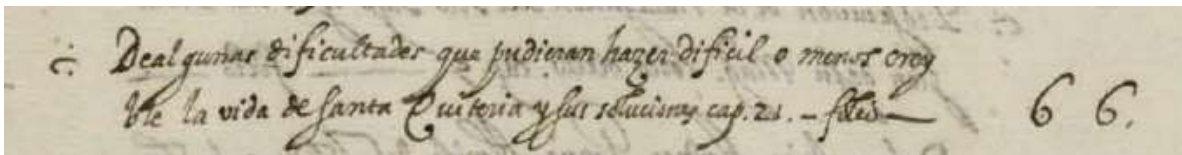 c. De algunas dificultades que pudieran hazer dificil o menos crey
ble la vida de santa Quiteria y sus soluciones cap. 21. - folio - 66.